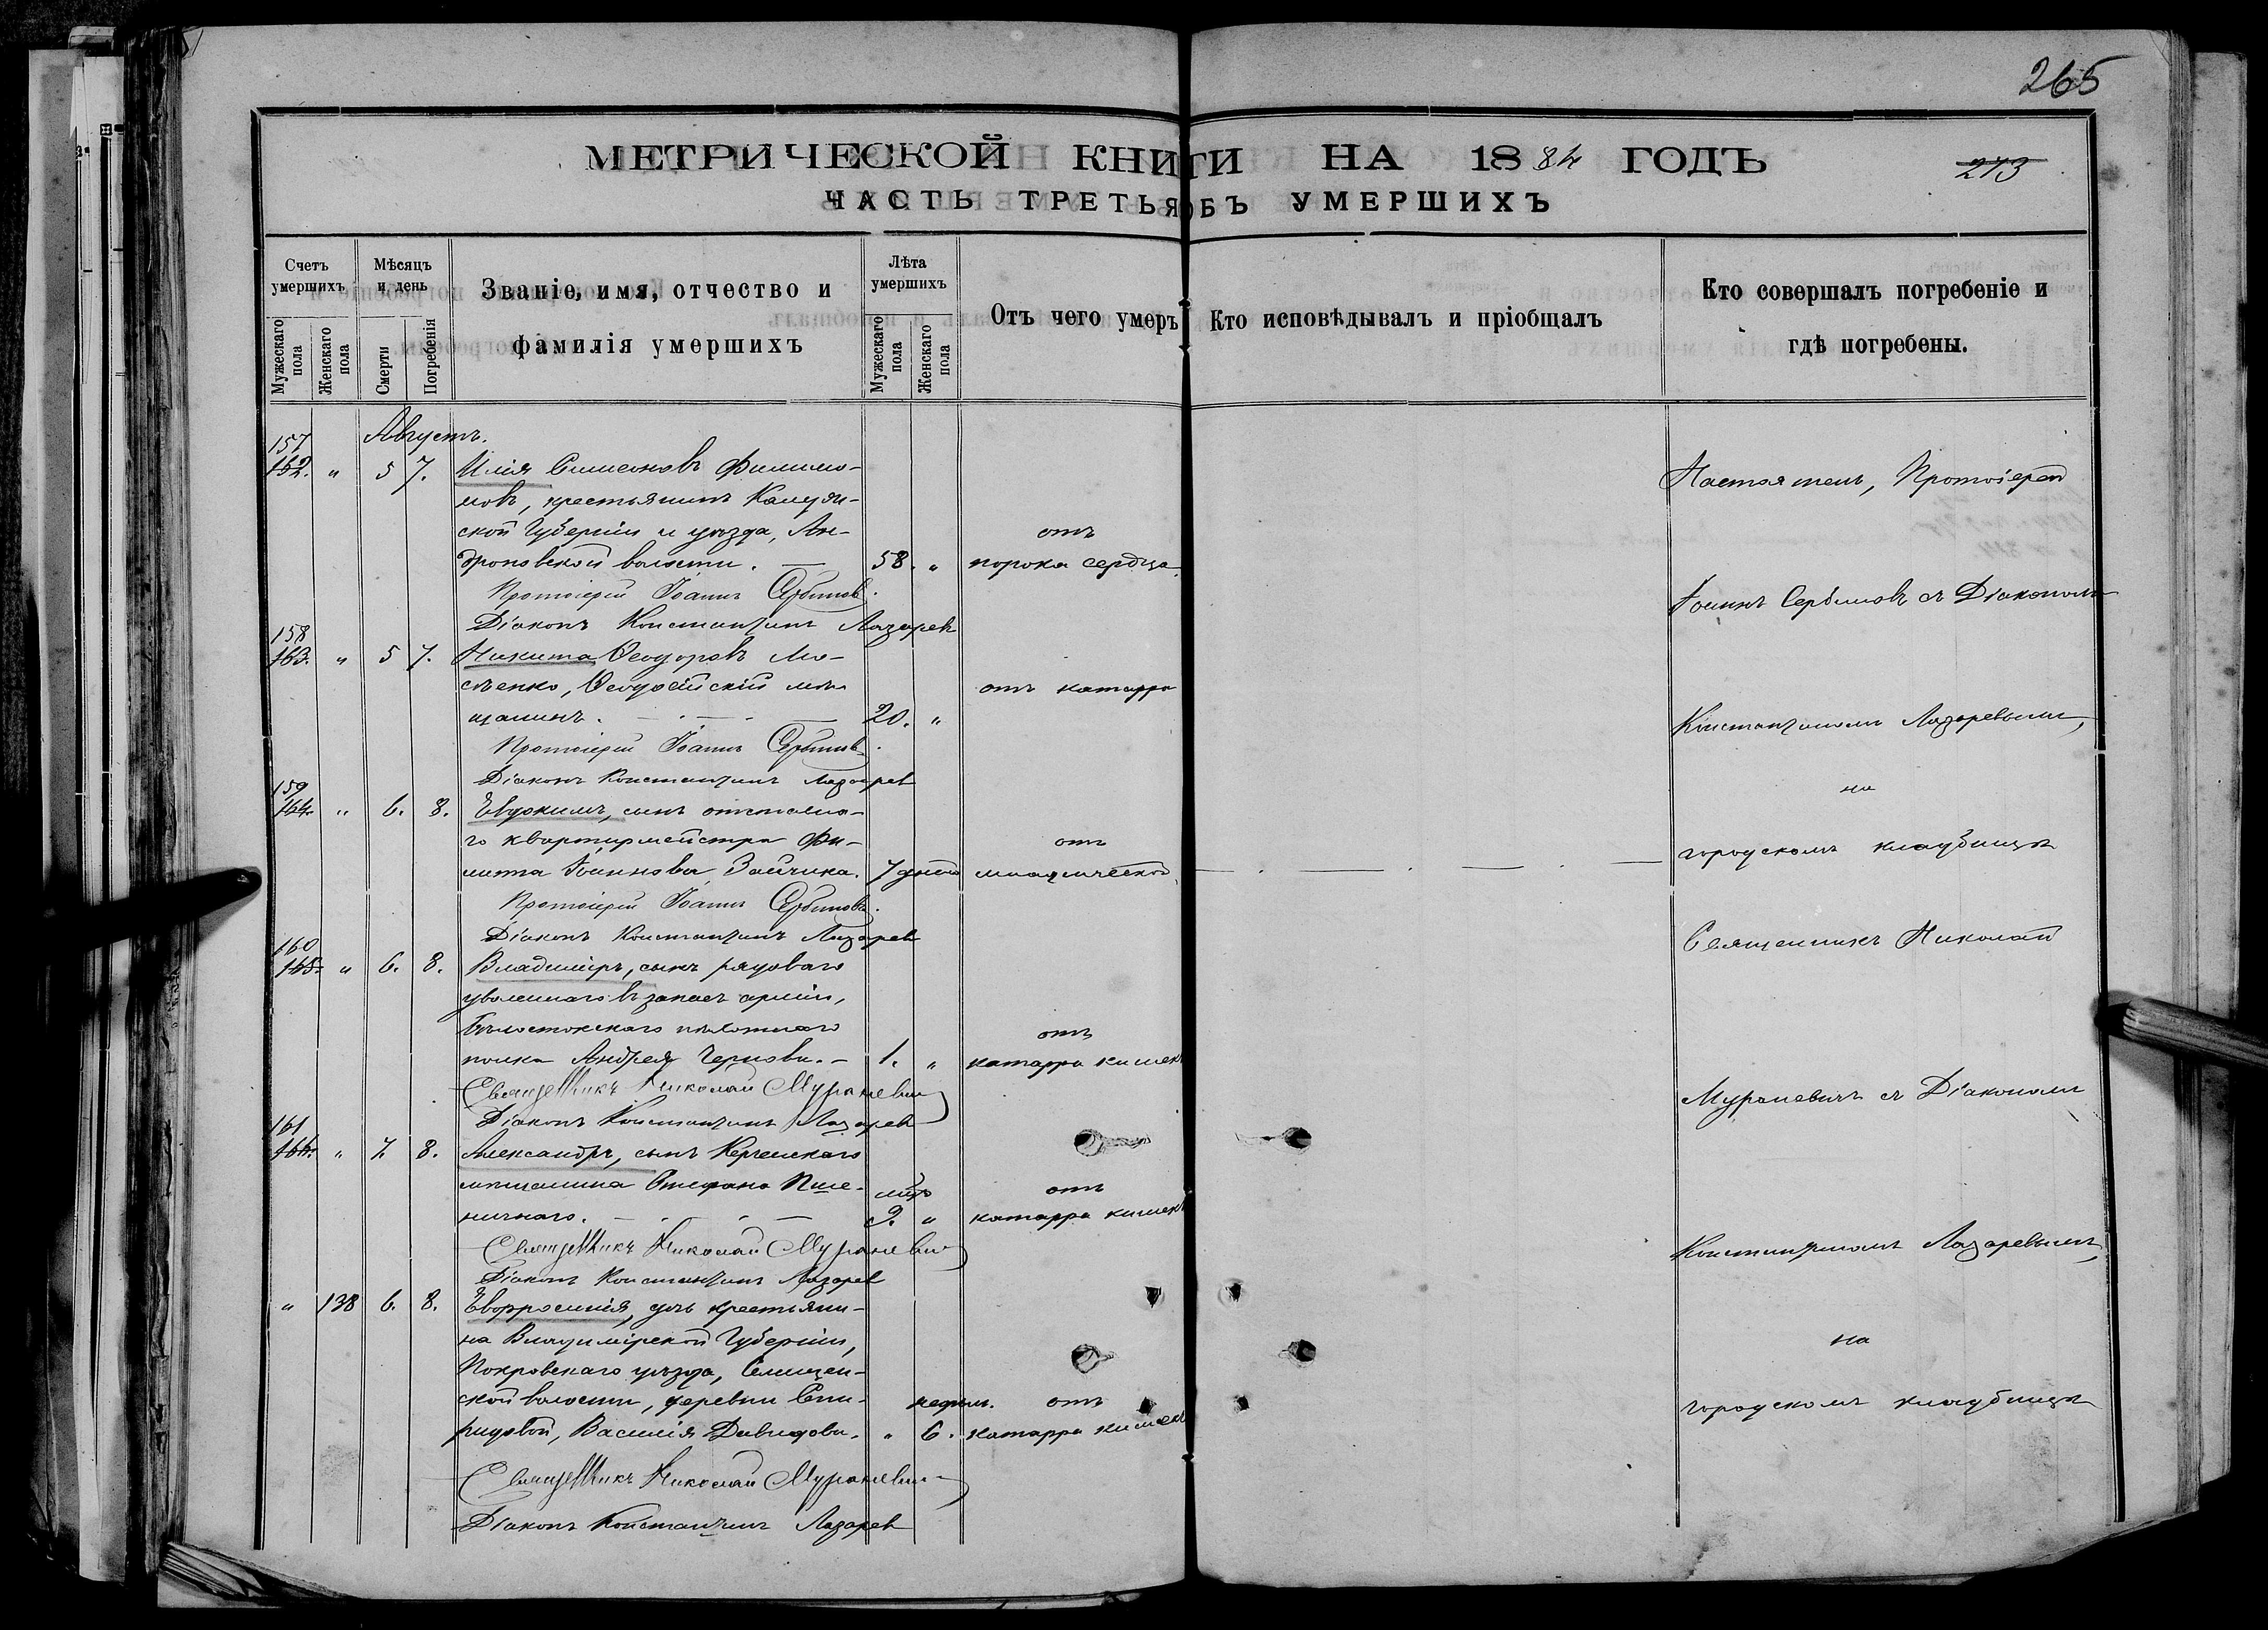 265
МЕТРИЧЕСКОЙ КНИГИ НА 1884 ГОДЪ
273
ЧАСТЬ ТРЕТЬЯ ОБЪ УМЕРШИХЪ
Счетъ умершихъ
Мужескаго пола
Женскаго пола
Мѣсяцъ и день
Смерти
Погребенія
Званіе, имя, отчество и фамилія умершихъ
Лѣта умершихъ
Мужескаго пола
Женскаго пола
Отъ чего умеръ
Кто исповѣдывалъ и пріобщалъ
Кто совершалъ погребеніе и гдѣ погребены.
Августъ.
157
162. " 5 7. Илія Симеоновъ Филимо-
новъ, крестьянинъ Калуж-
ской Губерніи и уѣзда, Ан-
дроновской волости. — 58. " отъ порока сердца.
Протоіерей Іоаннъ Сербиновъ.
Діаконъ Константинъ Лазарев
158
163. " 5 7. Никита Ѳеодоровъ
Ѳеодосійскій мѣ-
щанинъ. — 20. " отъ катарра
Протоіерей Іоаннъ Сербиновъ.
Діаконъ Константинъ Лазарев
159
164. " 6. 8. Евдокимъ, сынъ отставна-
го квартирмейстра Фи-
липпа Іоаннова Зайчика. 7 дней отъ
Протоіерей Іоаннъ Сербиновъ.
Діаконъ Константинъ Лазарев
160
165. " 6. 8. Владиміръ, сынъ рядоваго
уволеннаго въ запасъ арміи,
Бѣлостокскаго пѣхотнаго
полка Андрея Чернова. — 1. " отъ катарра кишекъ
Священникъ Николай Мураневич
Діаконъ Константинъ Лазарев
161
166. " 7. 8. Александръ, сынъ Керченскаго
мѣщанина Стефана Пше-
ничнаго. — 9. " отъ катарра кишекъ
Священникъ Николай Мураневич
Діаконъ Константинъ Лазарев
" 138 6. 8. Евфросинія, дочь крестьяни-
на Владимірской Губерніи,
Покровскаго уѣзда,
ской волости, деревни Спи-
ридовой, Василія Давидова. " недѣль. 6. отъ катарра кишекъ
Священникъ Николай Мураневич
Діаконъ Константинъ Лазарев
Настоятель, Протоіерей
Іоаннъ Сербиновъ съ Діакономъ
Константиномъ Лазаревымъ,
на
городскомъ кладбищѣ
Священникъ Николай
Мураневичъ съ Діакономъ
Константиномъ Лазаревымъ,
на
городскомъ кладбищѣ